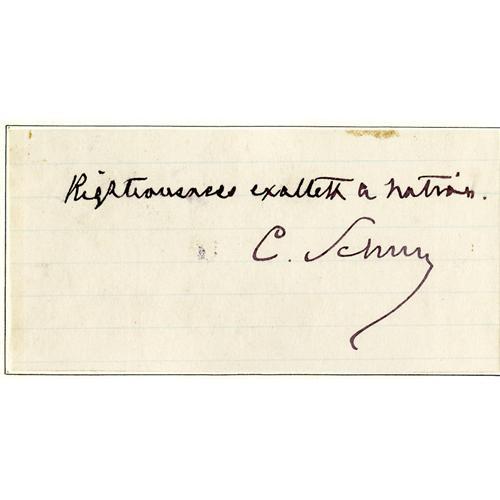 Righteousness exalteth a nation.
C. Schurz